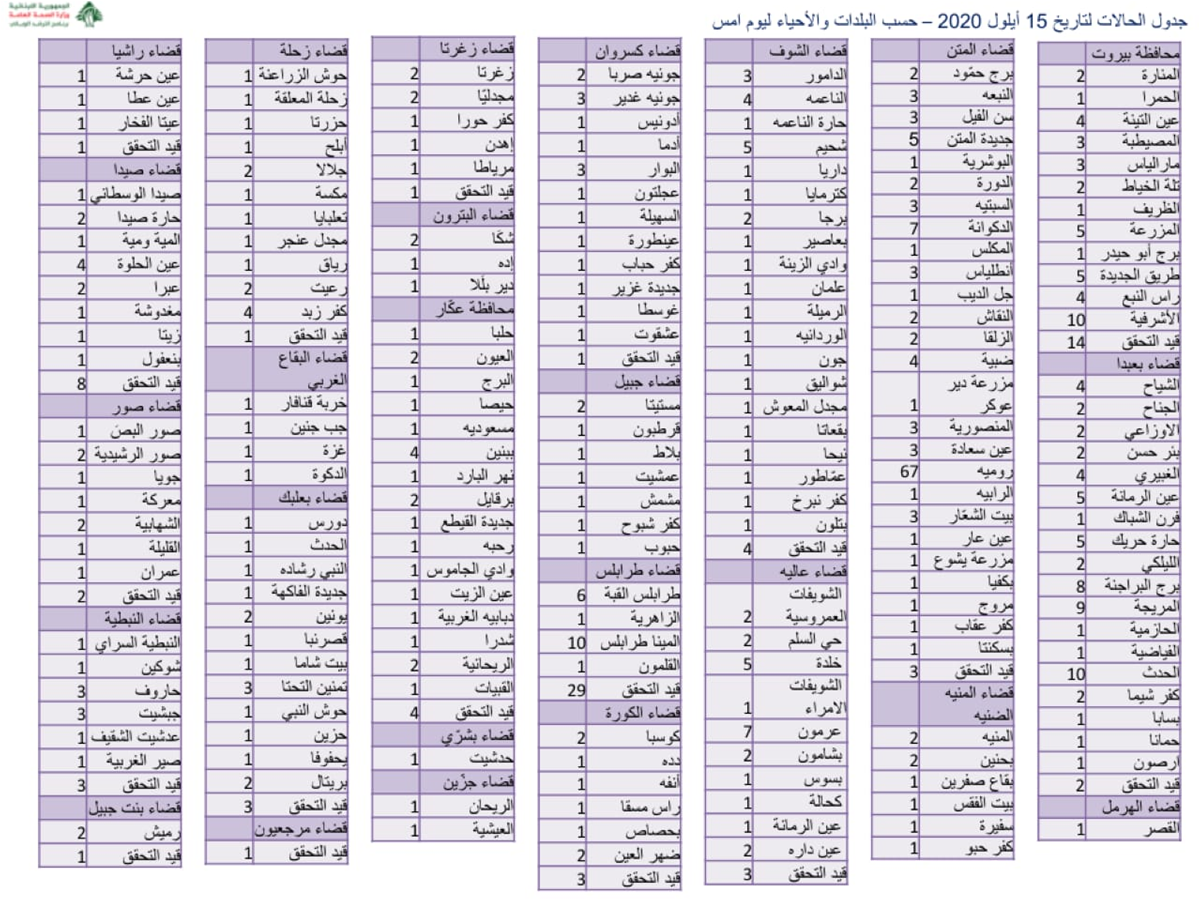 الجمهورية اللبنانية
وزارة الصحة العامة
برنامج الترصد الوبائي
جدول الحالات لتاريخ 15 أيلول 2020 – حسب البلدات والأحياء ليوم امس
محافظة بيروت
المنارة 2
الحمرا 1
عين التينة 4
المصيطبة 3
مارالياس 3
تلة الخياط 2
الظريف 1
المزرعة 5
برج أبو حيدر 1
طريق الجديدة 5
راس النبع 4
الأشرفية 10
قيد التحقق 14
قضاء بعبدا
الشياح 4
الجناح 2
الاوزاعي 2
بئر حسن 2
الغبيري 4
عين الرمانة 5
فرن الشباك 1
حارة حريك 5
الليلكي 2
برج البراجنة 8
المريجة 9
الحازمية 1
الفياضية 1
الحدث 10
كفر شيما 2
بسابا 1
حمانا 1
ارصون 1
قيد التحقق 2
قضاء الهرمل
القصر 1
قضاء المتن
برج حمّود 2
النبعه 3
سن الفيل 3
جديدة المتن 5
البوشرية 1
الدورة 2
السبتيه 3
الدكوانة 7
المكلس 1
أنطلياس 3
جل الديب 1
النقاش 2
الزلقا 2
ضبية 4
مزرعة دير
عوكر 1
المنصورية 3
عين سعادة 3
روميه 67
الرابيه 1
بيت الشعّار 3
عين عار 1
مزرعة يشوع 1
بكفيا 1
مروج 1
كفر عقاب 1
بسكنتا 1
قيد التحقق 3
قضاء المنيه
الضنيه
المنيه 2
بحنين 2
بقاع صفرين 1
بيت الفقس 1
سفيرة 1
كفر حبو 1
قضاء الشوف
الدامور 3
الناعمه 4
حارة الناعمه 1
شحيم 5
داريا 1
كترمايا 1
برجا 2
بعاصير 1
وادي الزينة 1
علمان 1
الرميلة 1
الوردانيه 1
جون 1
شواليق 1
مجدل المعوش 1
بقعاتا 1
نيحا 1
عمّاطور 1
كفر نبرخ 1
بتلون 1
قيد التحقق 4
قضاء عاليه
الشويفات
العمروسية 2
حي السلم 2
خلدة 5
الشويفات
الامراء 1
عرمون 7
بشامون 2
بسوس 1
كحالة 1
عين الرمانة 1
عين داره 2
قيد التحقق 3
قضاء كسروان
جونيه صربا 2
جونيه غدير 3
أدونيس 1
أدما 1
البوار 3
عجلتون 1
السهيلة 1
عينطورة 1
كفر حباب 1
جديدة غزير 1
غوسطا 1
عشقوت 1
قيد التحقق 1
قضاء جبيل
مستيتا 2
قرطبون 1
بلاط 1
عمشيت 1
مشمش 1
كفر شبوح 1
حبوب 1
قضاء طرابلس
طرابلس القبة 6
الزاهرية 1
المينا طرابلس 10
القلمون 1
قيد التحقق 29
قضاء الكورة
كوسبا 2
دده 1
أنفه 1
راس مسقا 1
بحصاص 1
ضهر العين 2
قيد التحقق 3
قضاء زغرتا
زغرتا 2
مجدليّا 2
كفر حورا 1
إهدن 1
مرياطا 1
قيد التحقق 1
قضاء البترون
شكّا 2
إده 1
دير بلّلا 1
محافظة عكّار
حلبا 1
العيون 2
البرج 1
حيصا 1
مسعوديه 1
ببنين 4
نهر البارد 1
برقايل 2
جديدة القيطع 1
رحبه 1
وادي الجاموس 1
عين الزيت 1
دبابيه الغربية 1
شدرا 1
الريحانية 2
القبيات 1
قيد التحقق 4
قضاء بشرّي
حدشيت 1
قضاء جزّين
الريحان 1
العيشية 1
قضاء زحلة
حوش الزراعنة 1
زحلة المعلقة 1
حزرتا 1
أبلح 1
جلالا 2
مكسة 1
تعلبايا 1
مجدل عنجر 1
رياق 1
رعيت 2
كفر زبد 4
قيد التحقق 1
قضاء البقاع
الغربي
خربة قنافار 1
جب جنين 1
غزة 1
الدكوة 1
قضاء بعلبك
دورس 1
الحدث 1
النبي رشاده 1
جديدة الفاكهة 1
يونين 2
قصرنبا 1
بيت شاما 1
تمنين التحتا 3
حوش النبي 1
حزين 1
يحفوفا 1
بريتال 2
قيد التحقق 3
قضاء مرجعيون
قيد التحقق 1
قضاء راشيا
عين حرشة 1
عين عطا 1
عيتا الفخار 1
قيد التحقق 1
قضاء صيدا
صيدا الوسطاني 1
حارة صيدا 2
المية ومية 1
عين الحلوة 4
عبرا 2
مغدوشة 1
زيتا 1
بنعفول 1
قيد التحقق 8
قضاء صور
صور البص 1
صور الرشيدية 2
جويا 1
معركة 1
الشهابية 2
القليلة 1
عمران 1
قيد التحقق 2
قضاء النبطية
النبطية السراي 1
شوكين 1
حاروف 3
جبشيت 3
عدشيت الشقيف 1
صير الغربية 1
قيد التحقق 3
قضاء بنت جبيل
رميش 2
قيد التحقق 1